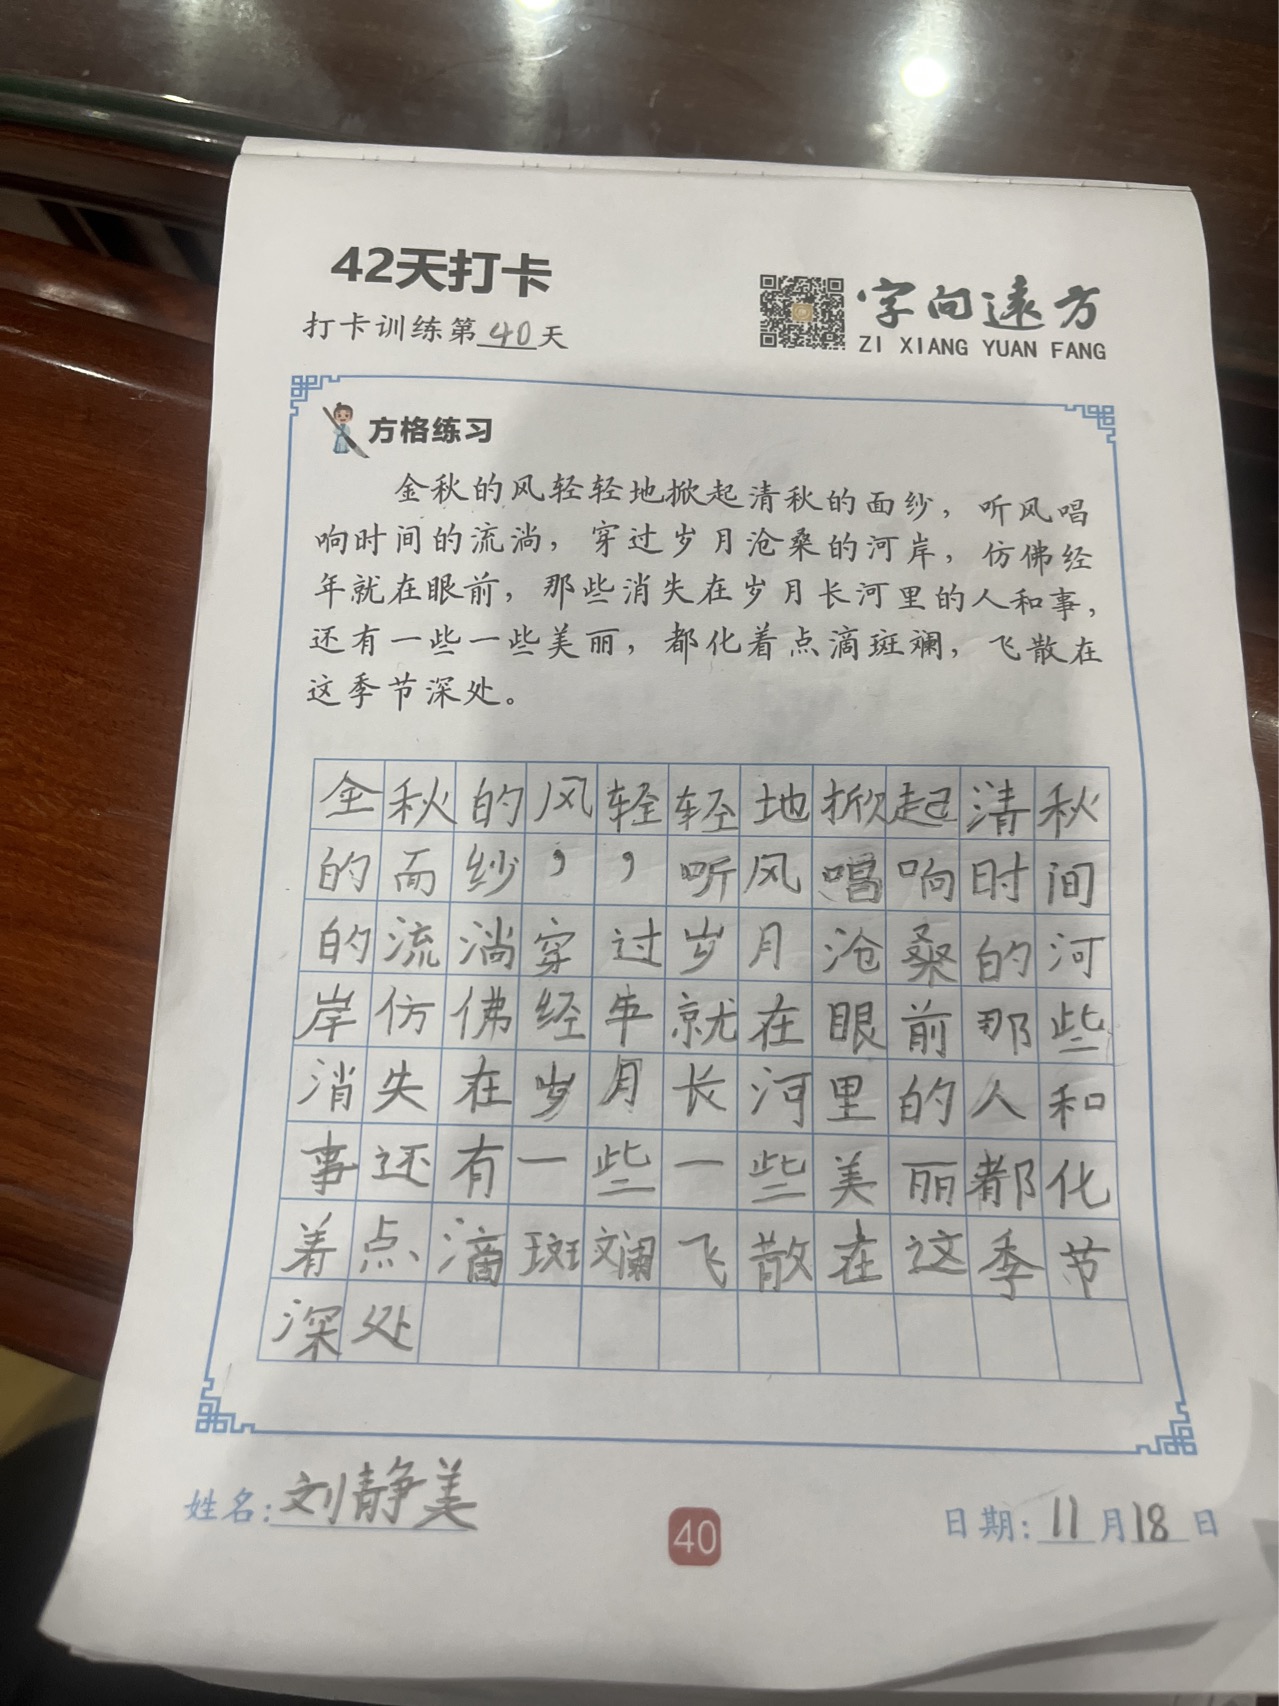 42天打卡
打卡训练第40天
字向远方
ZI XIANG YUAN FANG
方格练习
金秋的风轻轻地掀起清秋的面纱，听风唱
响时间的流淌，穿过岁月沧桑的河岸，仿佛经
年就在眼前，那些消失在岁月长河里的人和事，
还有一些一些美丽，都化着点滴斑斓，飞散在
这季节深处。
金秋的风轻轻地掀起清秋
的面纱，，听风唱响时间
的流淌穿过岁月沧桑的河
岸仿佛经年就在眼前那些
消失在岁月长河里的人和
事还有一些一些美丽都化
着点滴斑斓飞散在这季节
深处
姓名：刘静美
40
日期：11月18日